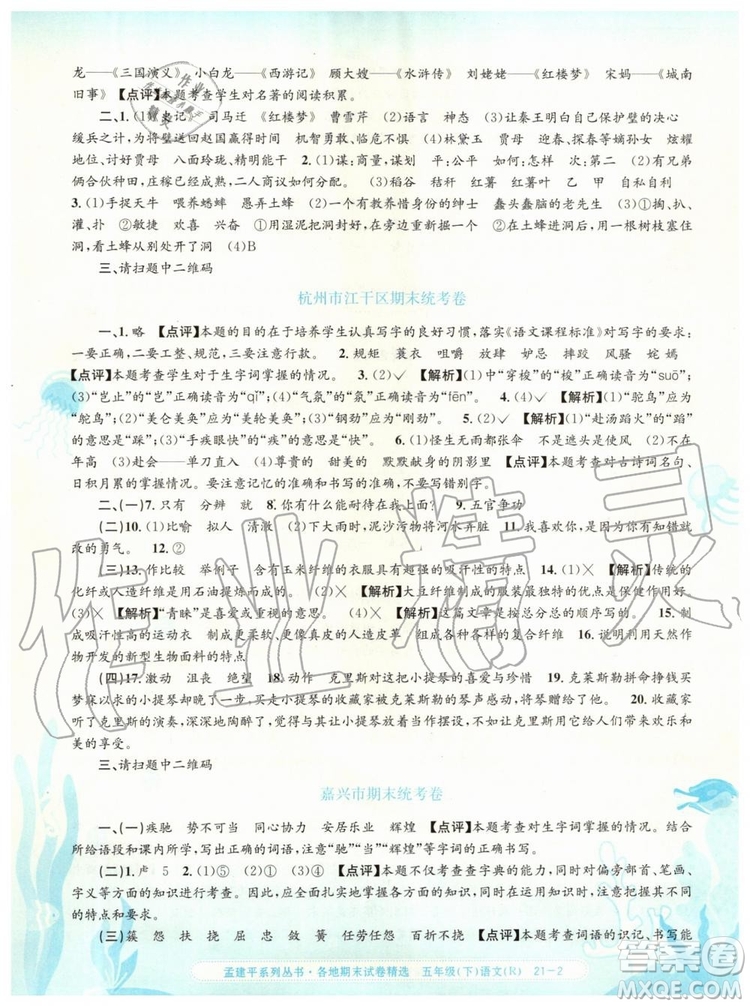 龙——《三国演义》 小白龙——《西游记》 顾大嫂——《水浒传》 刘姥姥——《红楼梦》 宋妈——《城南
旧事》 【点评】本题考查学生对名著的阅读积累。
二、1.(1)《史记》 司马迁 《红楼梦》 曹雪芹 (2)语言 神态 (3)让秦王明白自己保护璧的决心
缓兵之计，为将璧送回赵国赢得时间 机智勇敢、不畏强暴 (4)林黛玉 贾母 迎春、探春等嫡孙女 炫耀
地位、讨好贾母 八面玲珑、精明能干 2.(1)谋：商量，谋划 平：公平 如何：怎样 次：第二 (2)甲乙
俩人合伙种田，庄稼已经成熟，二人商议如何分配。 (3)稻谷 秸秆 红薯 红薯叶 乙 甲 自私自利
3.(1)手捉天牛 喂养蟋蟀 愚弄土蜂 (2)一个有教养惜身份的绅士 蠢头蠢脑的老先生 (3)①掏、扒、
灌、扑 ②敏捷 欢喜 兴奋 ①用湿泥把洞封住，在旁边重新开一个洞 ②在土蜂进洞后，用一根树枝塞住
洞，土蜂从别处开了洞 (4)B
三、请扫题中二维码
杭州市江干区期末统考卷
一、1.略 【点评】本题的目的在于培养学生认真写字的良好习惯，落实《语文课程标准》对写字的要求：
一要正确，二要工整、规范，三要整洁、美观。 2.规矩 蓑衣 咀嚼 放肆 妒忌 摔跤 风骚 姹嫣
【点评】本题考查学生对于生字词掌握的情况。 3.(2)✓ 【解析】(1)“穿梭”的“梭”正确读音为“suō”；
(3)“岂止”的“岂”正确读音为“qǐ”；(4)“气氛”的“氛”正确读音为“fēn”。 4.(4)✓ 【解析】(1)“鸵鸟”应为
“鸵鸟”；(2)“美仑美奂”应为“美轮美奂”；(3)“钢劲”应为“刚劲”。 5.(2)✓ 【解析】(1)“赴汤蹈火”的“蹈”
的意思是“踩”；(3)“手疾眼快”的“疾”的意思是“快”。 6.(1)怪生无雨都张伞 不是遮头是使风 (2)不在
年高 (3)赴会——单刀直入 (4)尊贵的 甜美的 默默献身的阴影里 【点评】本题考查对古诗词名句、
日积月累的掌握情况。要注意记忆的准确和日常积累，不要写错别字。
二、(一)7.只有 分辨 就 8.你有什么能耐待我上面？ 9.五官争功
(二)10.(1)比喻 拟人 清澈 (2)下大雨时，泥沙污物将河水弄脏 11.我喜欢你，是因为你有知错就
改的勇气。 12.②
(三)13.作比较 举例子 含有玉米纤维的衣服具有超强的吸汗性的特点 14.(1)× 【解析】传统的
化纤或人造纤维是由石油提炼而成的。 (2)× 【解析】大豆纤维制成的服装最独特的优点是保健作用好。
(3)× 【解析】“青睐”是喜爱或重视的意思。 (4)× 【解析】这篇文章是按总分总的顺序写的。 15.制
成吸汗性高的运动衣 制成更柔软、更逼真的人造皮革 合成各种各样的复合纤维 16.说明利用天然作
物开发的新型生物面料的特点
(四)17.激动 沮丧 绝望 18.动作 克里斯对这把小提琴的喜爱与珍惜 19.克莱斯勒拼命挣钱买
梦寐以求的小提琴却晚了一步，买走小提琴的收藏家被克莱斯勒的琴声感动，将琴赠给了他。 20.收藏家
听了克里斯的演奏，深深地陶醉了，觉得与其让小提琴在家里沉寂，不如送给克里斯为人们带来欢乐和
美的享受。
三、请扫题中二维码
嘉兴市期末统考卷
一、(一)疾驰 势不可当 同心协力 安居乐业 辉煌 【点评】本题考查学生对生字词掌握的情况。结合
所给语段和课内所学，正确填写词语，注意“驰”“当”“辉煌”等字词的正确书写。
(二)1.耂 5 2.(1)① (2)③ (3)④ 【点评】本题不仅考查了查字典的能力，同时对偏旁部首、笔画、
字义等方面的知识进行考查。学生不仅要熟悉查字典的方法，还要对汉字各方面的知识进行分析，有不同
的特点和要求。
(三)簇 怨 扶 挠 屈 忠 仇 敌 【点评】本题考查词语的掌握和书写情况。注意日常识记，书写能
孟建平系列丛书·各地期末试卷精选 五年级(下)语文(R) 21-2
作业精灵
大百科答案圈